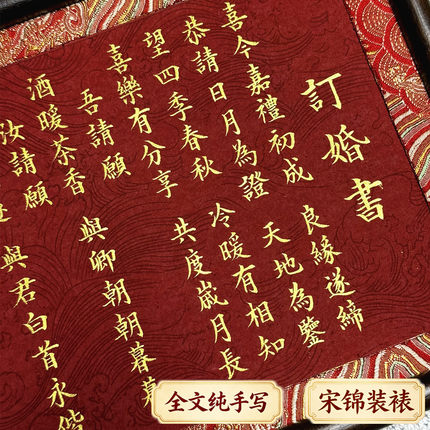 訂婚書
喜今嘉禮初成 良緣遂締
恭請日月為證 天地為鑒
望四季春秋 冷暖有相知
喜樂有分享 共度歲月長
吾請願
酒暖茶香 與卿朝朝暮暮
汝請願
與君白首永偕
全文纯手写
宋锦装裱